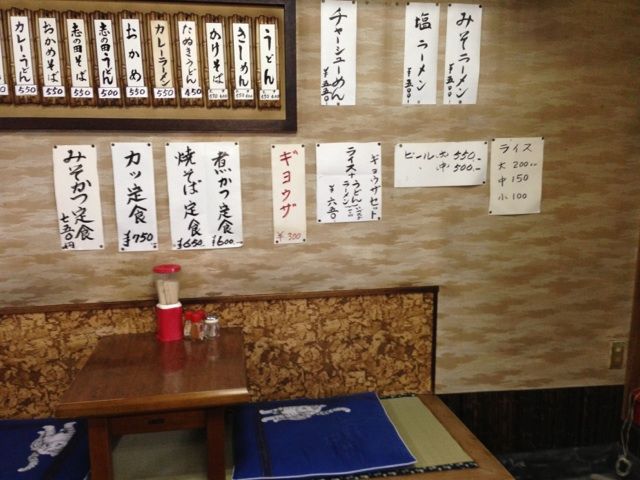 うどん
きしめん
かけそば
たぬきうどん
450
カレーラーメン
550
おかめ
550
志の田うどん
500
志の田そば
500
おかめそば
550
カレーうどん
550
みそラーメン
￥500-
塩ラーメン
￥500-
チャーシューめん
￥550-
ライス
大 200
中 150
小 100
ビール 大 550-
中 500-
ギョウザセット
￥650
ギョウザ
￥300
煮かつ定食
￥600-
焼そば定食
￥650-
カツ定食
￥750
みそかつ定食
七五〇円